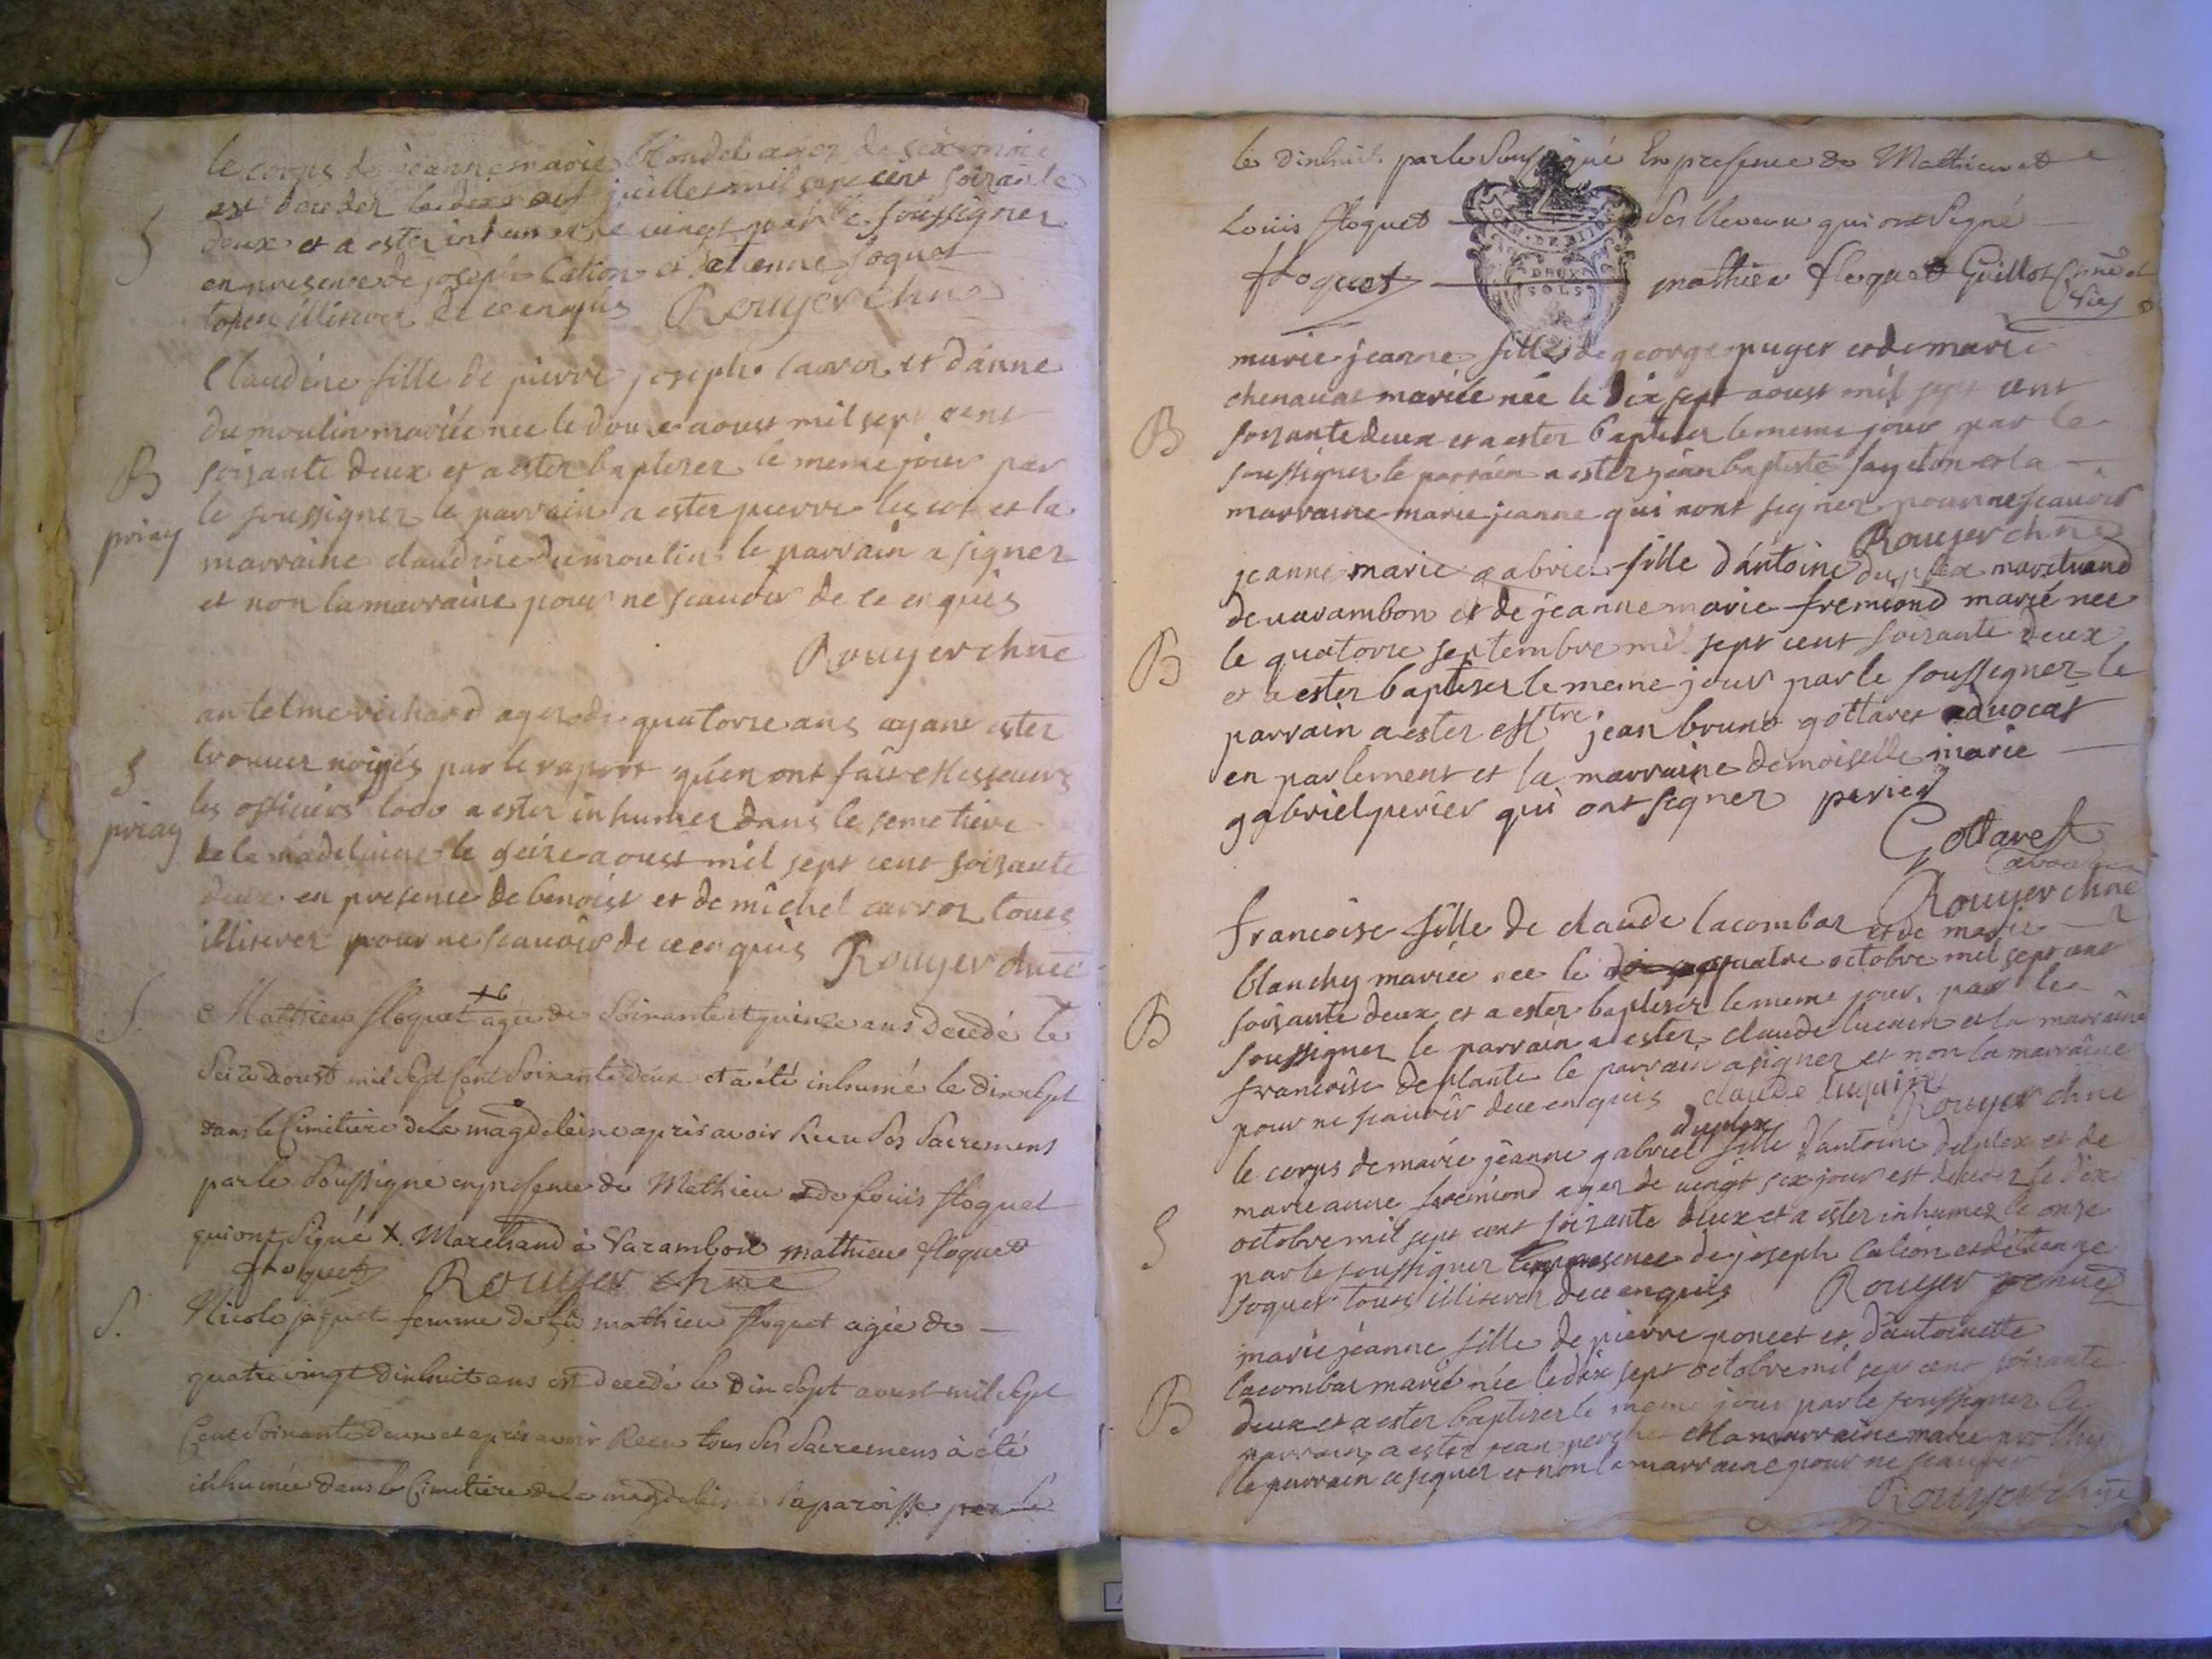 le corps de jeanne marie blondel ager de six mois
est deceder le dix neuf juillet mil sept cent soixante
S
deux et a ester inhumer le vingt par le soussigner
en presence de joseph Cation et detienne foquet
tous illiterer de ce enquis Rouyer chne
Claudine fille de pierre joseph carroz et danne
dumoulin mariée née le douze aoust mil sept cent
B
priay
soixante deux et a ester baptiser le meme jour par
le soussigner le parrain a ester pierre et la
marraine claudine dumoulin le parrain a signer
et non la marraine pour ne scauoir de ce enquis
Rouyer chne
antelme richard ager de quatorze ans ayant ester
trouuer noiyés par le raport qu'en ont fait Messieurs
S
priay
les officiers loco a ester inhumer dans le semetiere
de la madelaine le seize aoust mil sept cent soixante
deux en presence de benoist et de michel carroz tous
illiterer pour ne scauoir de ce enquis Rouyer chne
S.
Mathieu floquet agée de Soixante et quinze ans decedé le
Seize aoust mil sept Cent Soixante deux et a été inhumé le dix sept
dans le Cimetiere de La magdeleine apres avoir Recu Ses Sacremens
par le Soussigné en presence de Mathieu et de Louis floquet
qui ont Signé X. Marchand à Varambon mathieu floquet
floquet Rouyer chne
S.
Nicole jaquet femme de feu mathieu floquet agée de
quatre vingt dix huit ans est decedé le dix sept aoust mil sept
Cent Soixante deux et apres avoir Recu tous Ses Sacremens a été
inhumée dans le Cimetiere de La magdeleine sa paroisse par le
le dix huit par le Soussigné En presence de Mathieu et
Louis floquet Ses Neveux qui ont Signé
DEUX
SOLS
floquet mathieu floquet Guillot Chne et
Vic
marie jeanne fille de george puger et de marie
chenauat mariée née le dix sept aoust mil sept cent
B
soixante deux et a ester baptiser le meme jour par le
soussigner le parrain a ester jean baptiste fayeton et la
marraine marie jeanne qui nont signer pour ne scauoir
Rouyer chne
jeanne marie gabriel fille d'antoine duplex marchand
de uarambon et de jeanne marie fremiond marié née
B
le quatorze septembre mil sept cent soixante deux
et a ester baptiser le meme jour par le soussigner le
parrain a ester Mtre jean bruno gottaret aduocat
en parlement et la marraine demoiselle marie
gabriel perier qui ont signer perier
Gottaret
avocat
Rouyer chne
francoise fille de claude lacombaz et de marie
blanchy mariée née le quatre octobre mil sept cent
B
soixante deux et a ester baptiser le meme jour par le
soussigner le parrain a ester claude luquin et la marraine
francoise deplante le parrain a signer et non la marraine
pour ne scauoir de ce enquis claude luquin
Rouyer chne
duplex
le corps de marie jeanne gabriel fille d'antoine duplex et de
marie anne fremiond ager de vingt six jour est deceder le dix
S
octobre mil sept cent soixante deux et a ester inhumer le onze
par le soussigner en presence de joseph Cation et detienne
foquet tous illiterer de ce enquis Rouyer chne
marie jeanne fille de pierre poncet et d'antoinette
lacombaz marié née le dix sept octobre mil sept cent soixante
B
deux et a ester baptiser le meme jour par le soussigner le
parrain a ester jean et la marraine marie
le parrain a signer et non la marraine pour ne scauoir
Rouyer chne